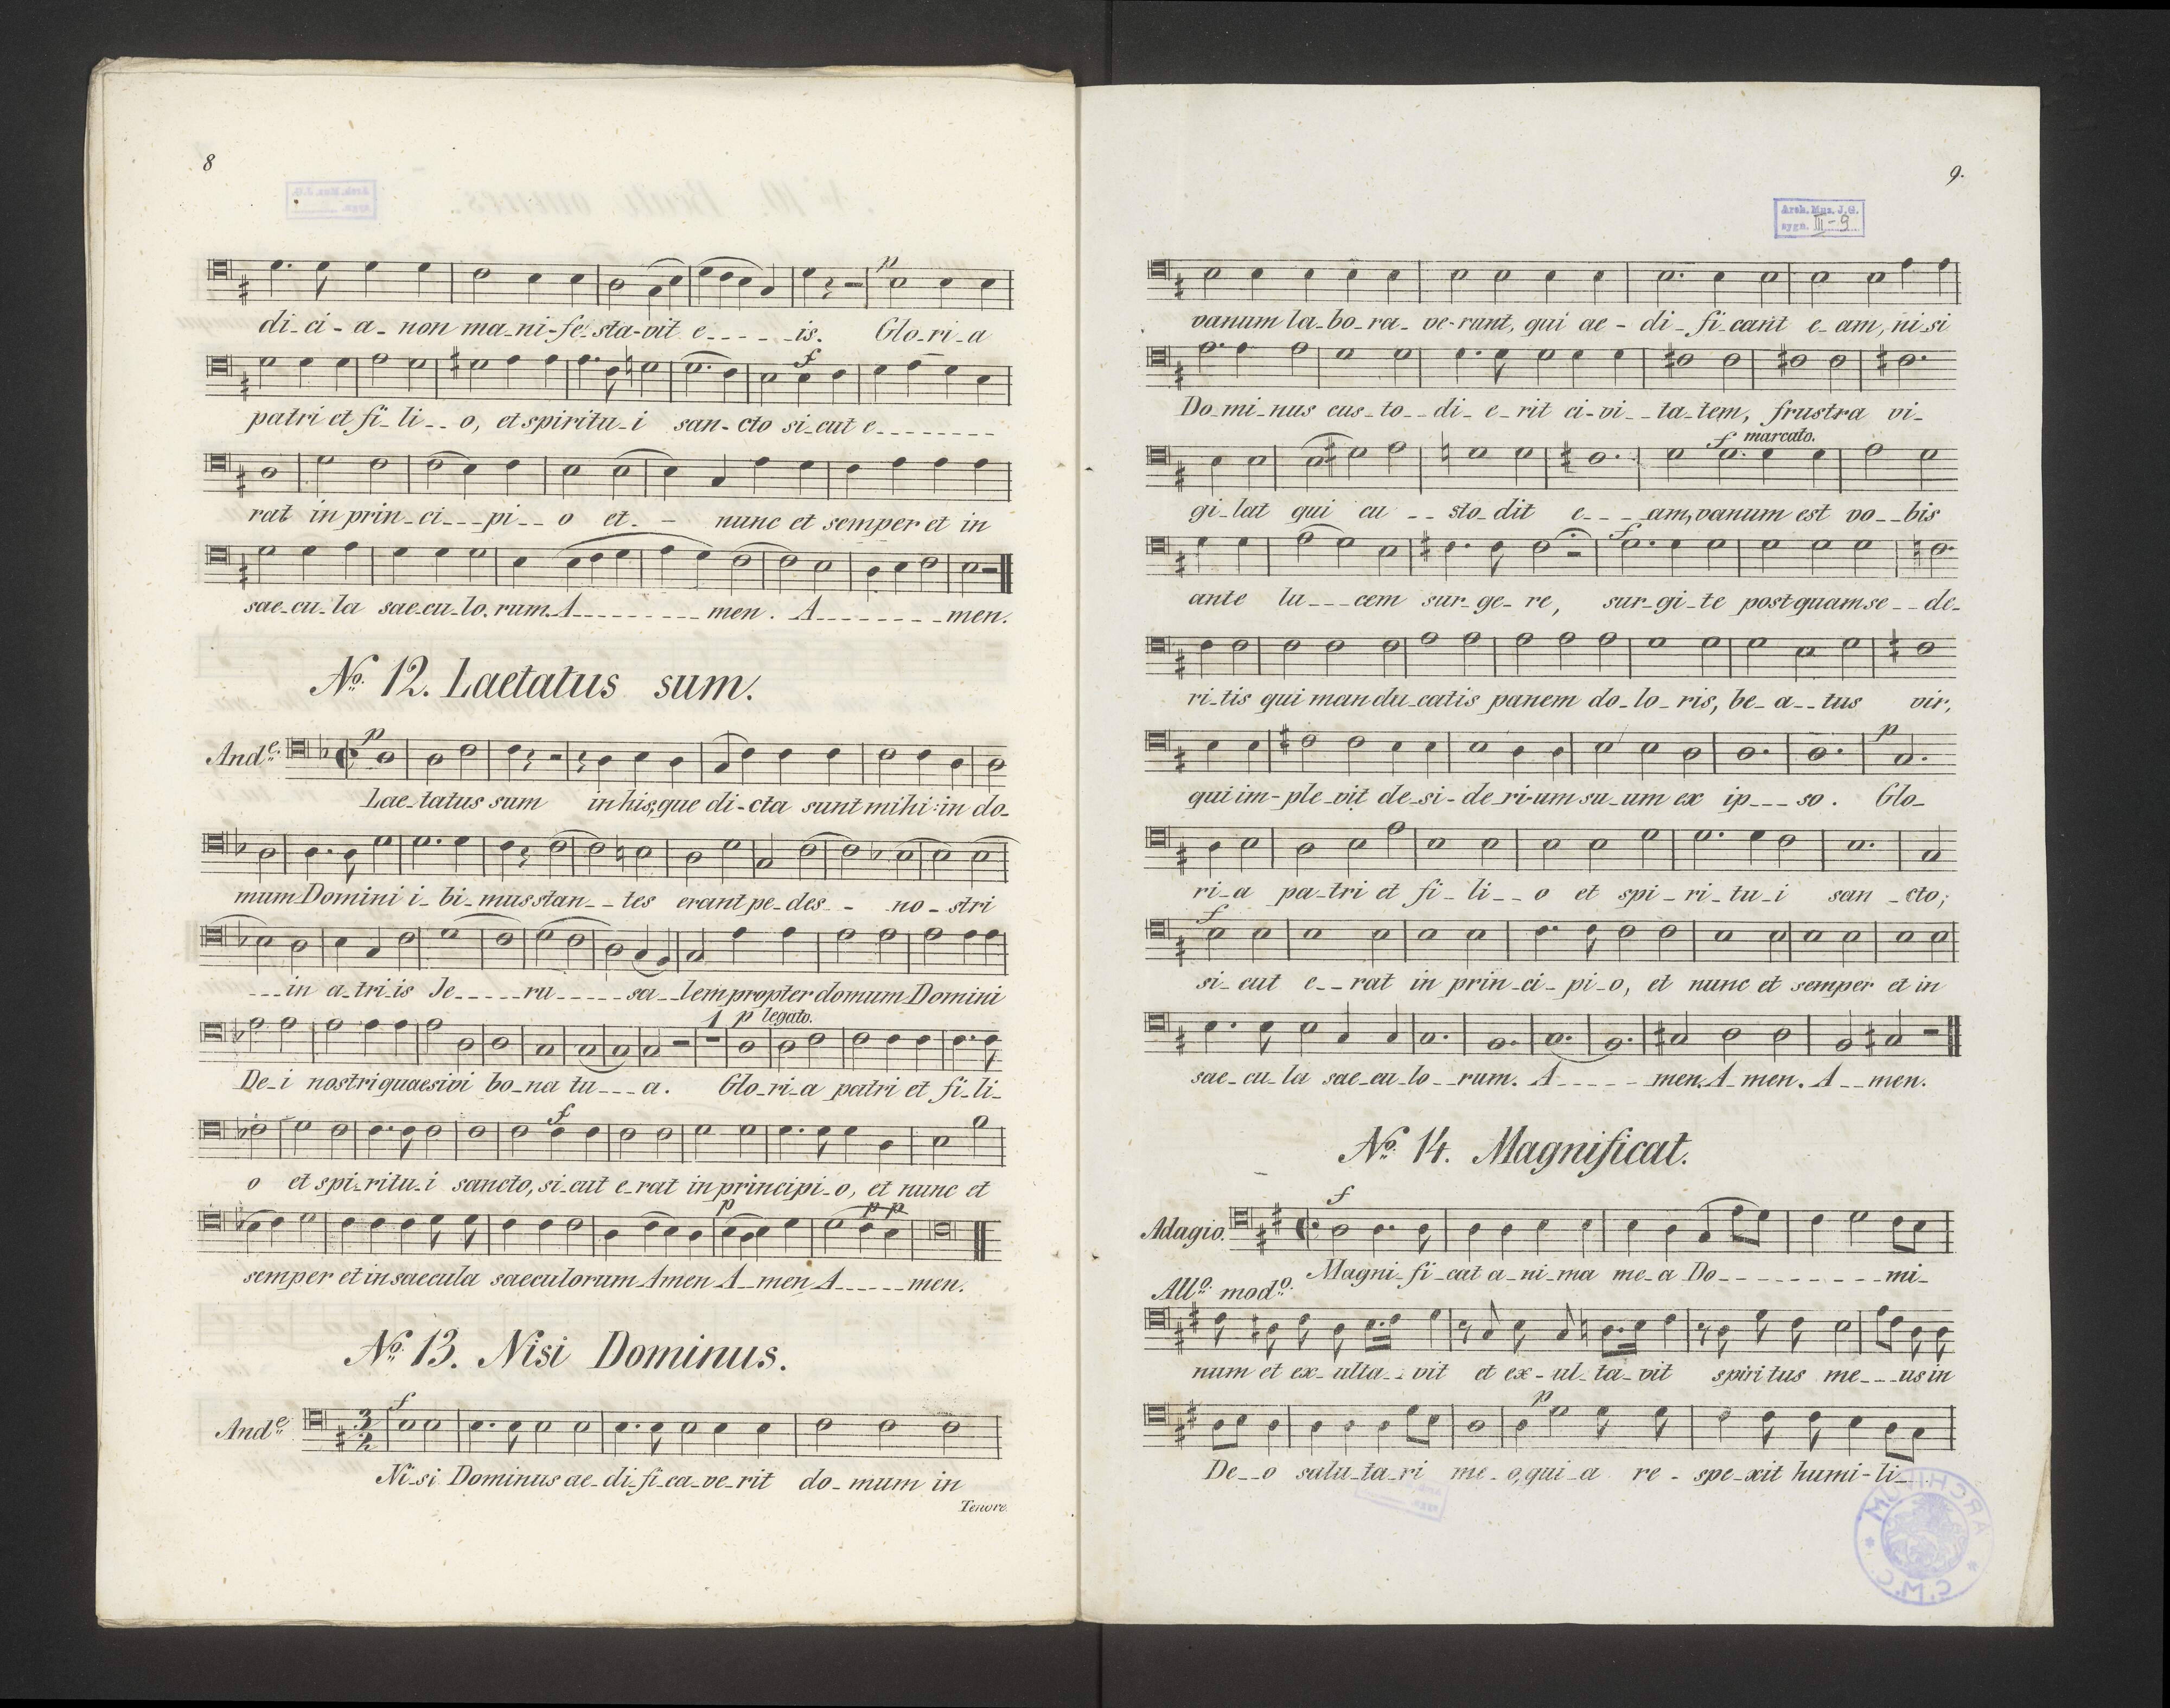 8
di_ci_a_ non ma_ni_fe_sta_vit e_____is. Glo_ri_a
p
patri et fi_li__o, et spiritu_i san_cto si_cut e________
f
rat in prin_ci___pi__o et_ _ nunc et semper et in
sae_cu_la sae_cu_lo_rum. A_________men. A________men.
No. 12. Laetatus sum.
Ande. p
Lae_tatus sum in his, que di_cta sunt mihi: in do_
mum Domini i_bi_mus stan__tes erant pe_des_ _ no_stri
___in a_tri_is Je_____ru_____sa__lem propter domum Domini
1 p legato.
De_i nostri quaesivi bo_na tu___a. Glo_ri_a patri et fi_li_
f
o et spi_ritu_i sancto, si_cut e_rat in principi_o, et nunc et
p p p
semper et in saecula saeculorum Amen A_men A_____men.
No. 13. Nisi Dominus.
Ande. f 3/2
Ni_si Dominus ae_di_fi_ca_ve_rit do_mum in
Tenore.
9.
Arch. Mus. J.G.
sygn. III-9
vanum la_bo_ra_ve_runt, qui ae_di_fi_cant e_am, ni_si
Do_mi_nus cus_to__di_e_rit ci_vi__ta_tem, frustra vi_
f marcato.
gi_lat qui cu__sto_dit e____am, vanum est vo__bis
f
ante lu___cem sur_ge_re, sur_gi_te postquam se__de_
ri_tis qui mandu_catis panem do_lo_ris, be_a__tus vir,
p
qui im_ple_vit de_si_de_ri_um su_um ex ip___so. Glo_
ri_a pa_tri et fi_li__o et spi_ri_tu_i san_cto;
f
si_cut e__rat in prin_ci_pi_o, et nunc et semper et in
sae_cu_la sae_cu_lo__rum. A_____men. A_men. A__men.
No. 14. Magnificat.
Adagio. f
Magni_fi_cat a_ni_ma me_a Do_________mi_
Allo. modo.
num et ex_ulta__vit et ex_ul_ta_vit spiritus me___us in
p
De__o salu_ta_ri me_o, qui_a re_spe_xit humi_li_
ARCHIVUM
C.M.C.